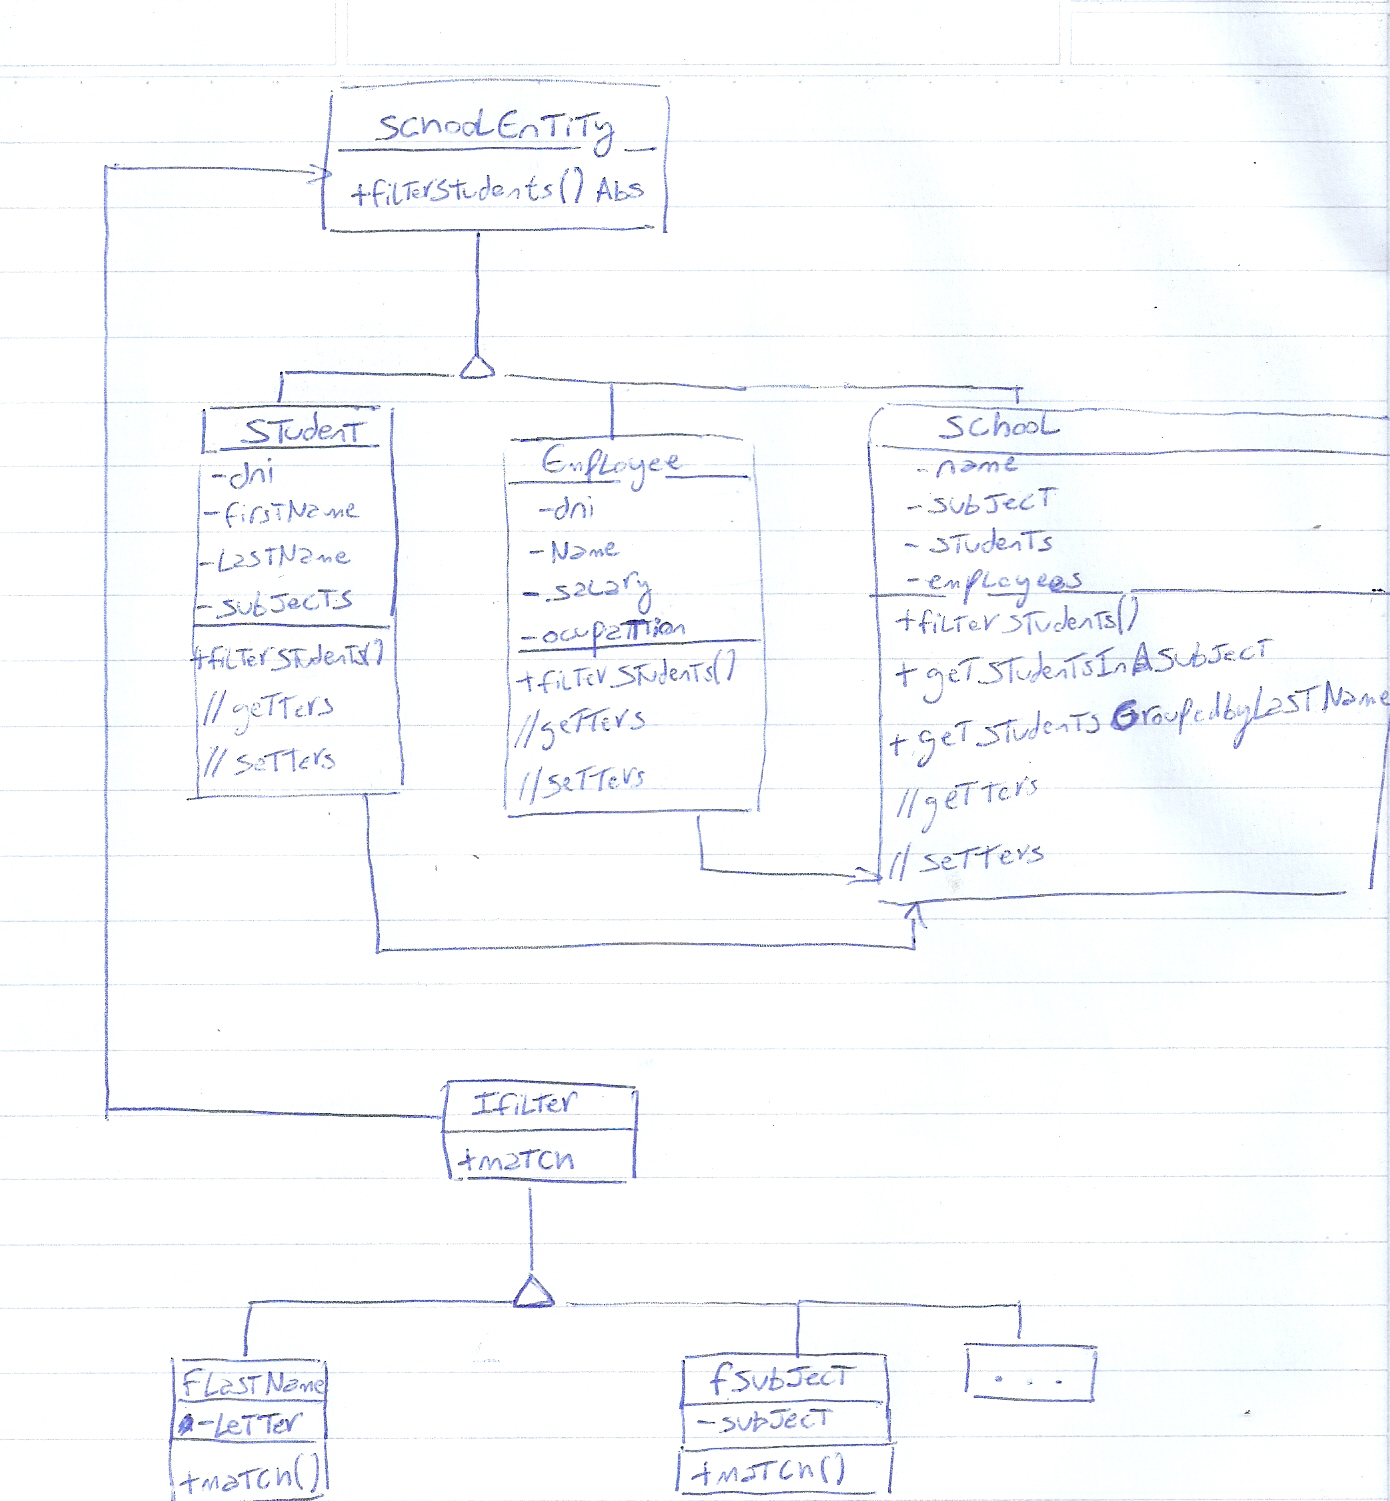 SchoolEntity
+filterStudents() Abs
Student
-dni
-firstName
-LastName
-subJects
+filterStudents()
//getters
//setters
Employee
-dni
-Name
-.salary
-ocupattion
+filterStudents()
//getters
//setters
School
-name
-subJect
-students
-employees
+filterStudents()
+getStudentsInASubJect
+getStudentsGroupedbyLastName
//getters
//setters
Ifilter
+match
fLastName
-Letter
+match()
fsubJect
-subJect
+match()
...